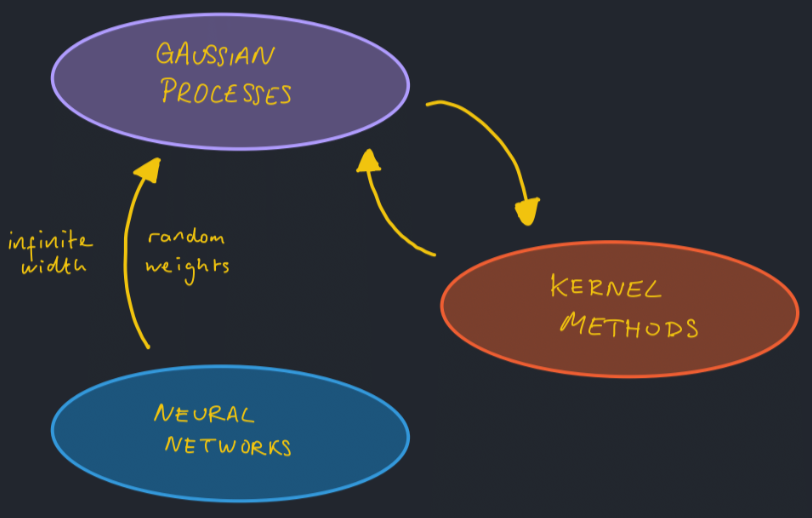 GAUSSIAN
PROCESSES
infinite
width
random
weights
KERNEL
METHODS
NEURAL
NETWORKS